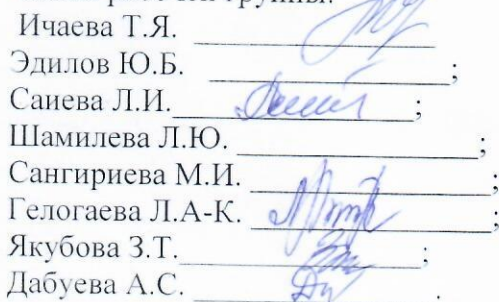 Ичаева Т.Я. ________________
Эдилов Ю.Б. ________________;
Саиева Л.И.________________;
Шамилева Л.Ю. ________________;
Сангириева М.И. ________________;
Гелогаева Л.А-К. ________________;
Якубова З.Т.________________;
Дабуева А.С. ________________.